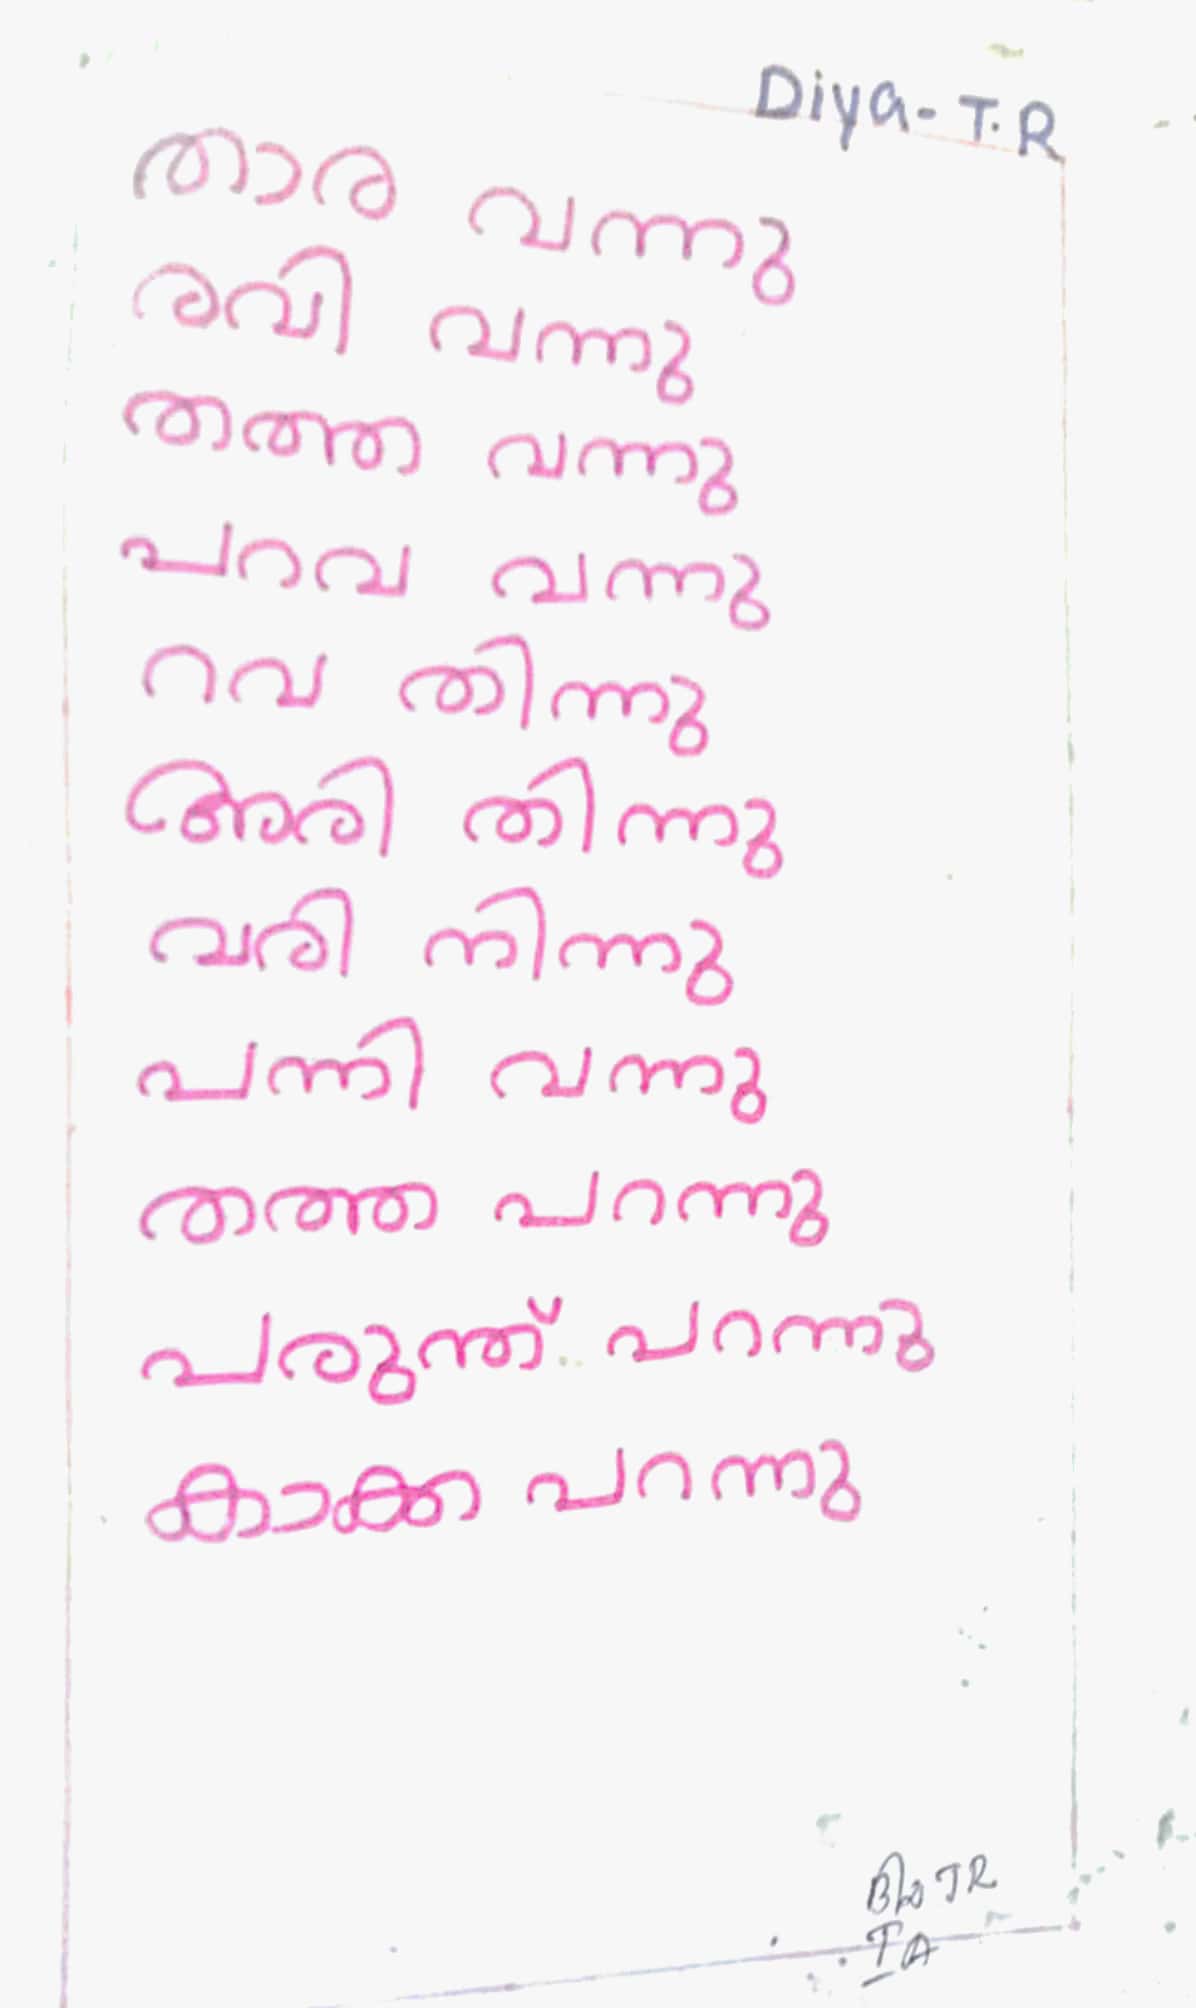 Diya - T.R
താര വന്നു
രവി വന്നു
തത്ത വന്നു
പറവ വന്നു
റവ തിന്നു
അരി തിന്നു
വരി നിന്നു
പന്നി വന്നു
തത്ത പറന്നു
പരുന്ത് പറന്നു
കാക്ക പറന്നു
TR
I A